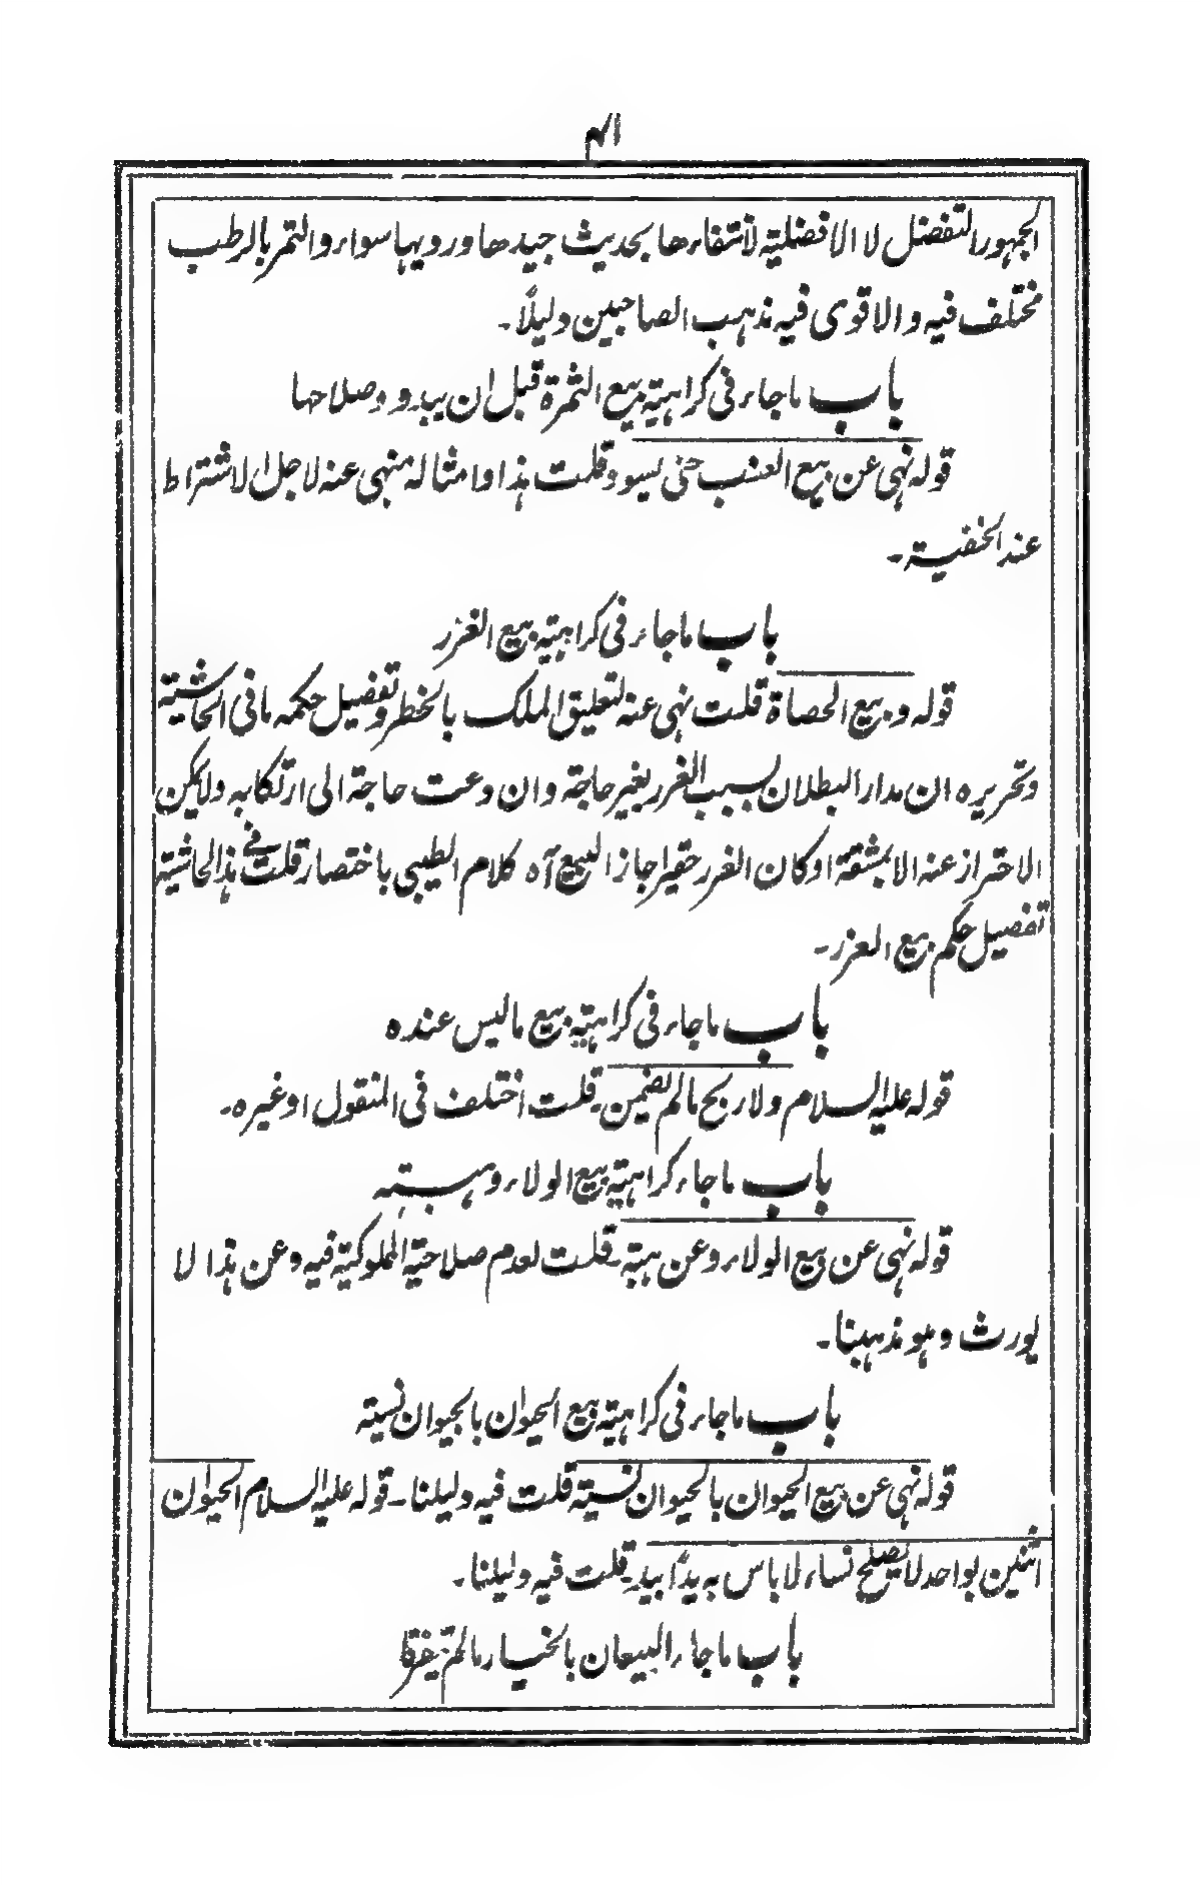 ۴۱۱
الجمہور التفضل لا الافضلیۃ لانتفاءھا بحدیث جیدھا وردیہا سواء والتمر بالرطب
مختلف فیہ والاقوی فیہ مذہب الصاحبین دلیلاً۔
باب ماجاء فی کراہیۃ بیع الثمرۃ قبل ان یبدو صلاحہا
قولہ نہی عن بیع العنب حتی یسود قلت ہذا وامثالہ منہی عنہ لاجل الاشتراط
عند الحنفیۃ۔
باب ماجاء فی کراہیۃ بیع الغرر
قولہ وبیع الحصاۃ قلت نہی عنہ لتعلیق الملک بالخطر وتفصیل حکمہ مافی الحاشیۃ
وتحریرہ ان مدار البطلان بسبب الغرر بغیر حاجۃ وان دعت حاجۃ الی ارتکابہ ولایمکن
الاحتراز عنہ الابمشقۃ اوکان الغرر حقیرا جاز البیع آہ کلام الطیبی باختصار قلت فی ہذا الحاشیۃ
تفصیل حکم بیع الغرر۔
باب ماجاء فی کراہیۃ بیع مالیس عندہ
قولہ علیہ السلام ولا ربح مالم یضمن۔ قلت اختلف فی المنقول اوغیرہ۔
باب ماجاء کراہیۃ بیع الولاء وہبتہ
قولہ نہی عن بیع الولاء وعن ہبتہ۔ قلت لعدم صلاحیۃ المملوکیۃ فیہ وعن ہذا لا
یورث وہو مذہبنا۔
باب ماجاء فی کراہیۃ بیع الحیوان بالحیوان نسیئۃ
قولہ نہی عن بیع الحیوان بالحیوان نسیئۃ قلت فیہ دلیلنا۔ قولہ علیہ السلام الحیوان
اثنین بواحد لایصلح نساء لاباس بہ یدًا بید۔ قلت فیہ دلیلنا۔
باب ماجاء البیعان بالخیار مالم یتفرقا